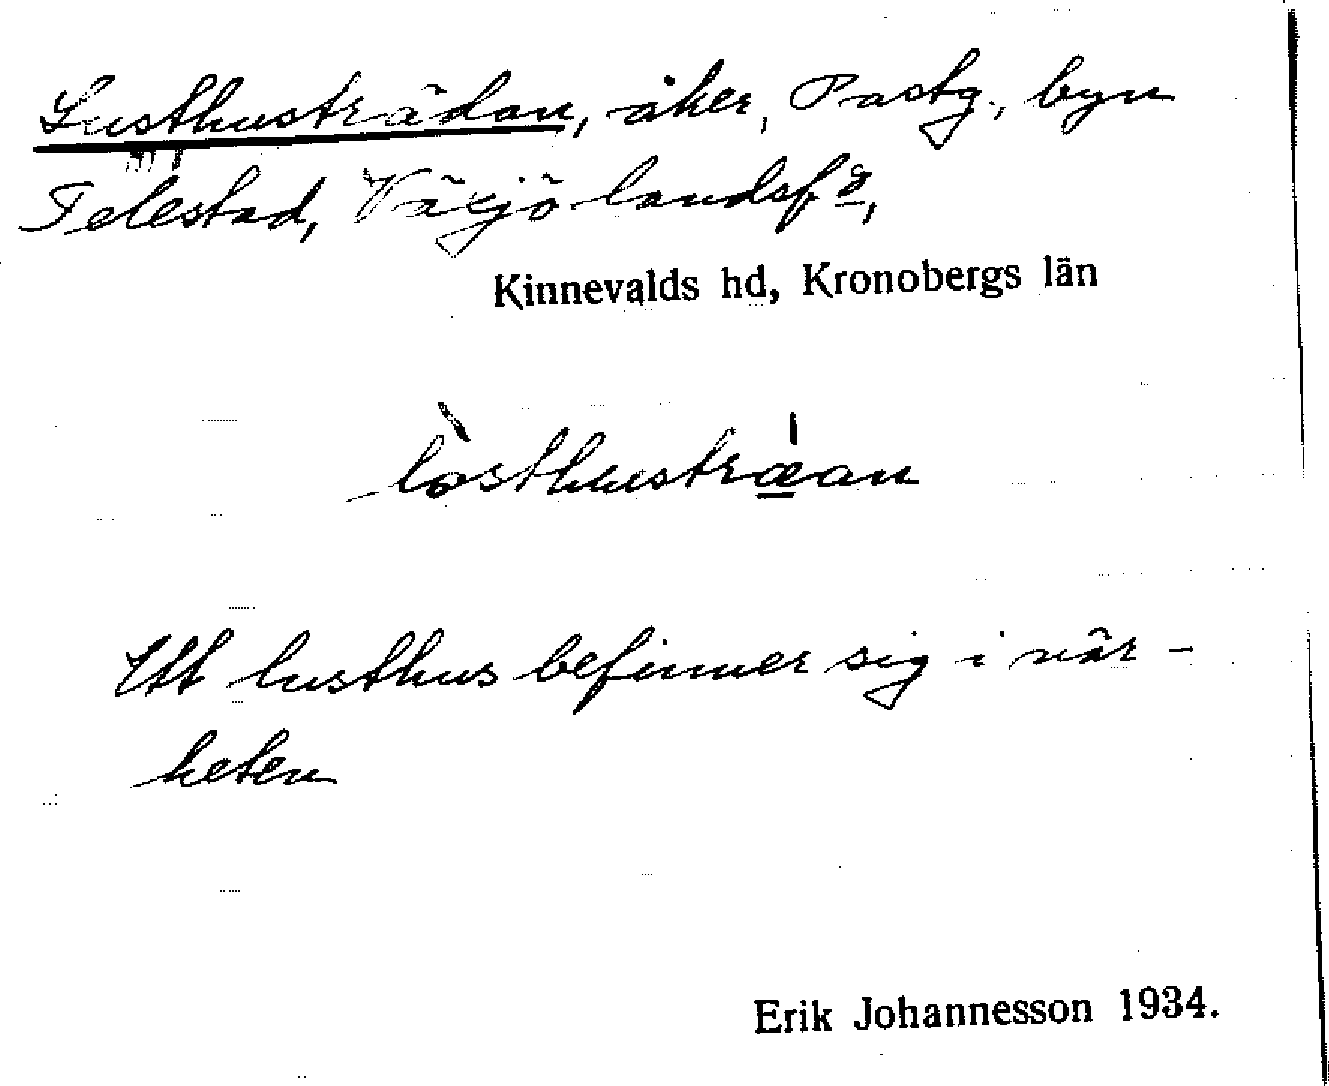 Lusthusträdan, åker, Pastg., byn
Telestad, Växjö landsf⁠ş,
Kinnevalds hd, Kronobergs län
lòsthustrǽan
Ett lusthus befinner sig i när-
heten
Erik Johannesson 1934.